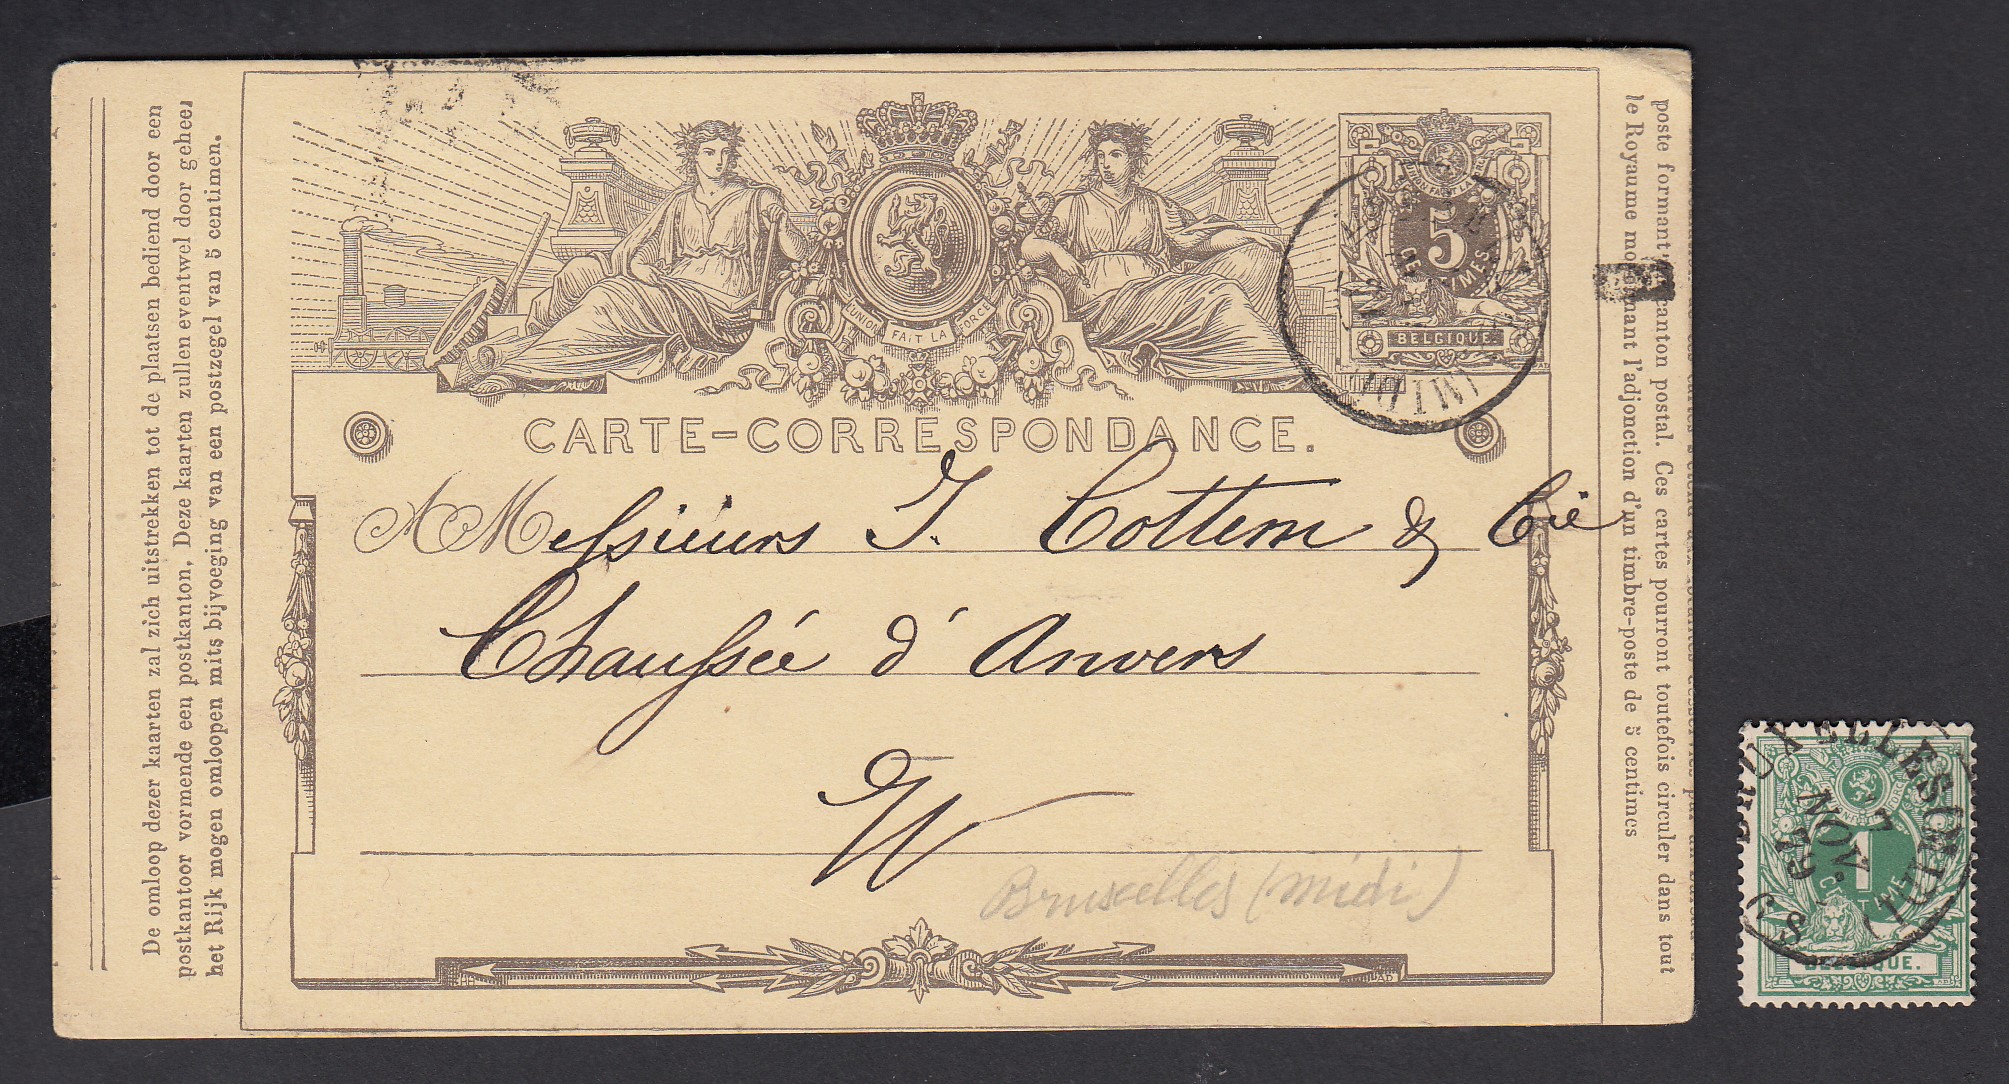 De omloop dezer kaarten zal zich uitstrekken tot de plaatsen bediend door een
postkantoor vormende een postkanton, Deze kaarten zullen eventwel door geheel
het Rijk mogen omloopen mits bijvoeging van een postzegel van 5 centimen.
L'UNION FAIT LA FORCE
5
CENTIMES
BELGIQUE.
CARTE-CORRESPONDANCE.
A Messieurs J. Cottem & Cie
Chaussée d'Anvers
Bruxelles (midi)
poste formant canton postal. Ces cartes pourront toutefois circuler dans tout
le Royaume moyennant l'adjonction d'un timbre-poste de 5 centimes
BRUXELLES
(MIDI)
17
NOV.
1
CENTIME
BELGIQUE.